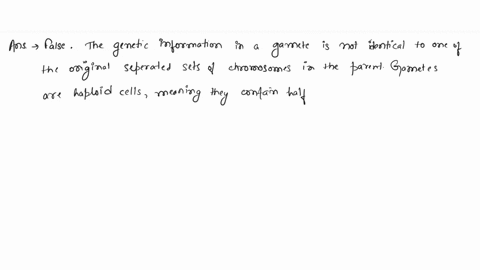 Ans → False. The genetic information in a gamete is not identical to one of
the original seperated sets of chromosomes in the parent. Gametes
are haploid cells, meaning they contain half